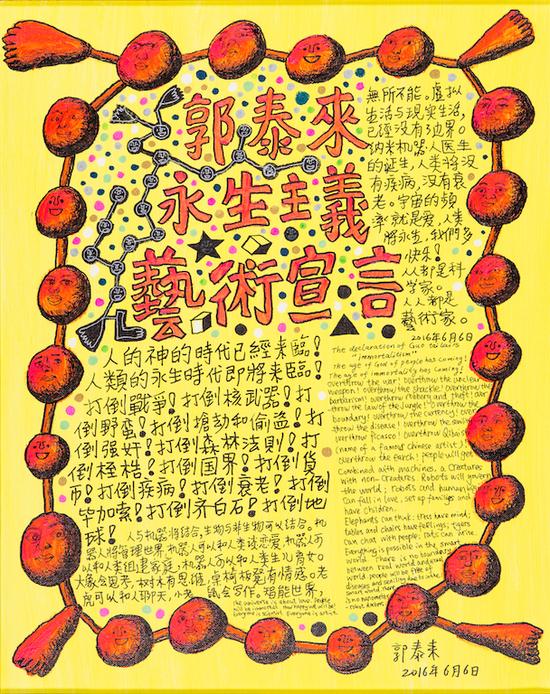 郭泰來
永生主義
藝術宣言
人的神的時代已經来臨!
人類的永生時代即將来臨!
打倒戰爭!打倒核武器!打
倒野蛮!打倒搶劫和偷盗!打
倒强奸!打倒森林法則!打
倒桎梏!打倒国界!打倒貨
币!打倒疾病!打倒衰老!打倒
毕加索!打倒齐白石!打倒地
球!
人与机器将结合,生物与非生物可以结合。机
器人将管理世界,机器人可以和人类谈恋爱,机器人可
以和人类组建家庭,机器人可以和人类生儿育女。
大象会思考,树林有思维,桌椅板凳有情感。老
虎可以和人聊天,小老鼠会写作。智能世界,
無所不能。虚拟
生活与现实生活,
已經没有边界。
纳米机器人医生
的诞生,人类将没
有疾病,没有衰
老。宇宙的频
率就是爱,人类
將永生,我們多
快乐!
人人都是科
学家。
人人都是
藝術家。
2016年6月6日
The declaration of Guo tailai's
"immortalitism"
The age of God's people has coming!
The age of immortality has coming!
overthrow the war! overthrow the nuclear
weapon! overthrow the shackle! overthrow the
barbarism! overthrow robbery and theft! over
throw the law of the jungle! overthrow the
boundary! overthrow the currency! over
throw the disease! overthrow the senility!
overthrow Picasso! overthrow Qibaishi
(name of a famous Chinese artist)!
overthrow the earth! people will get
combined with machines, a creatures
with non-creatures. Robots will govern
the world; robots and human beings
can fall in love, set up families and
have children.
Elephants can think; trees have mind;
tables and chairs have feelings; tigers
can chat with people; rats can write.
Everything is possible in the smart
world. There is no boundary
between real world and
world. people will be free of
diseases and senility
The universe is about love. People
will be immortal. How happy we will be!
Everyone is scientist. Everyone is artist.
郭泰来
2016年6月6日